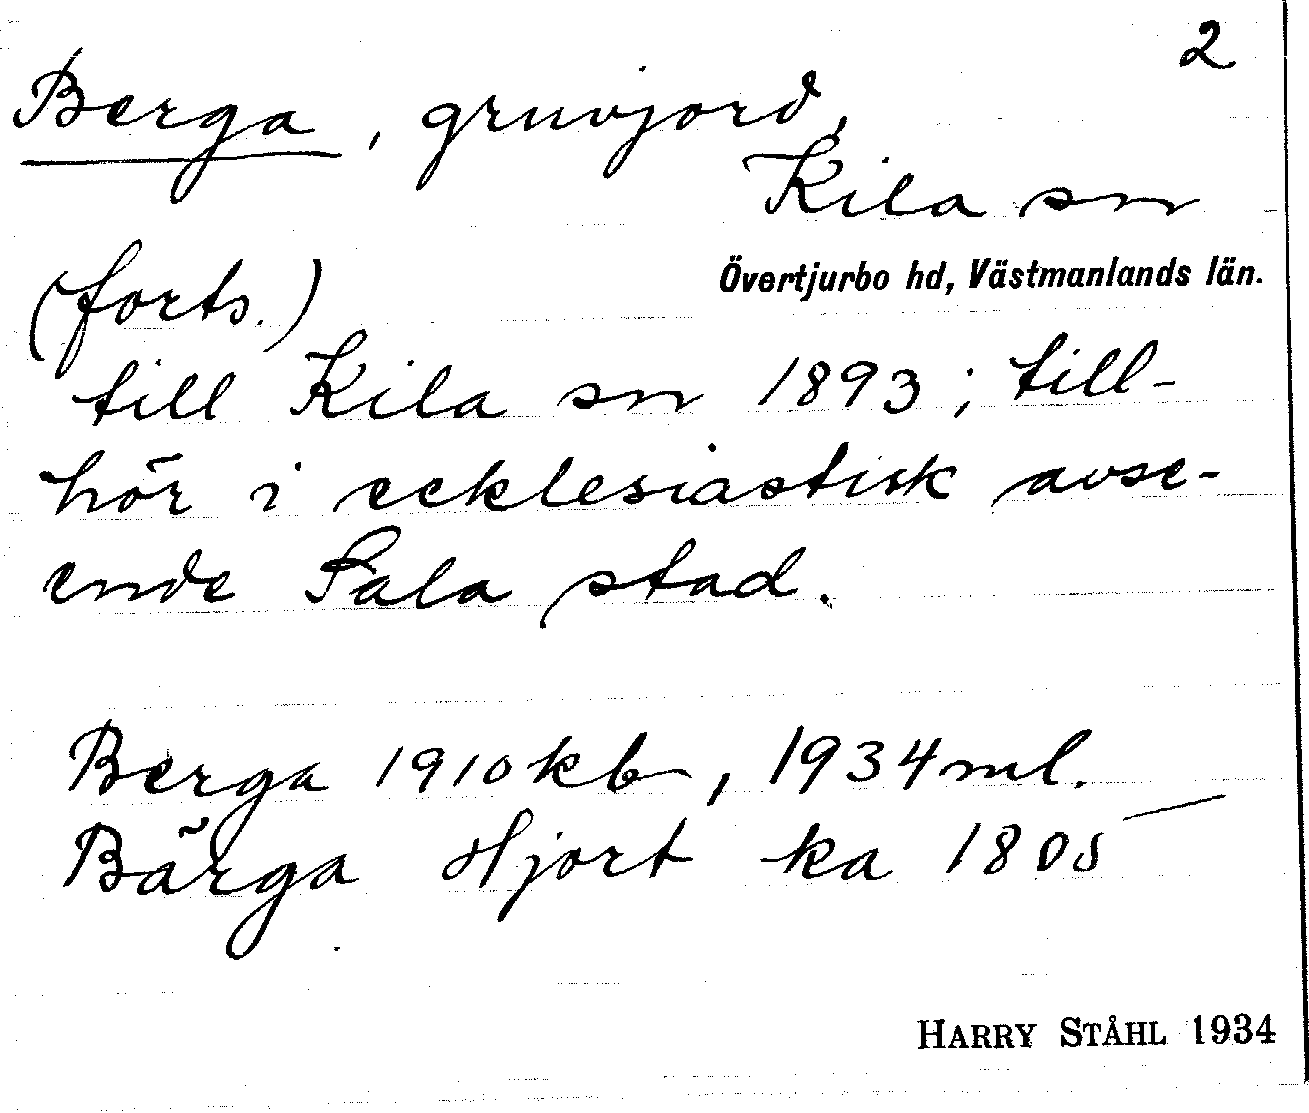 2
Berga, gruvjord,
Kila sn
Övertjurbo hd, Västmanlands län.
(forts.)
till Kila sn 1893; till-
hör i ecklesiastisk avse-
ende Sala stad.
Berga 1910 kb, 1934 ml.
Bärga Hjort ka 1805
HARRY STÅHL 1934